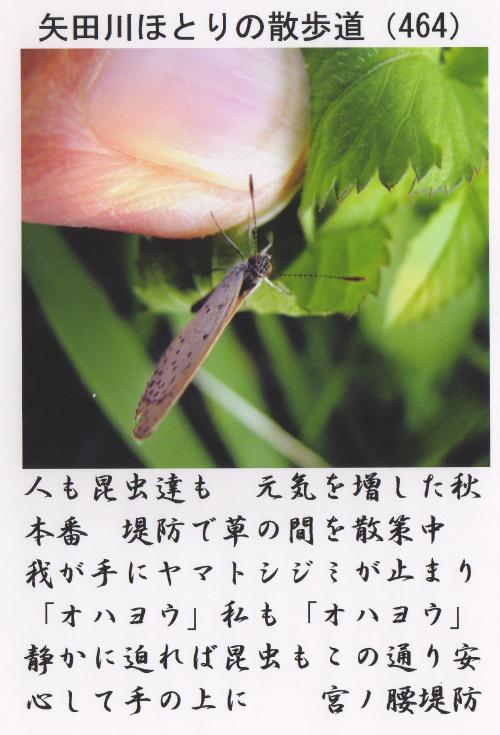 矢田川ほとりの散歩道（464）
人も昆虫達も　元気を増した秋
本番　堤防で草の間を散策中
我が手にヤマトシジミが止まり
「オハヨウ」私も「オハヨウ」
静かに迫れば昆虫もこの通り安
心して手の上に　　宮ノ腰堤防